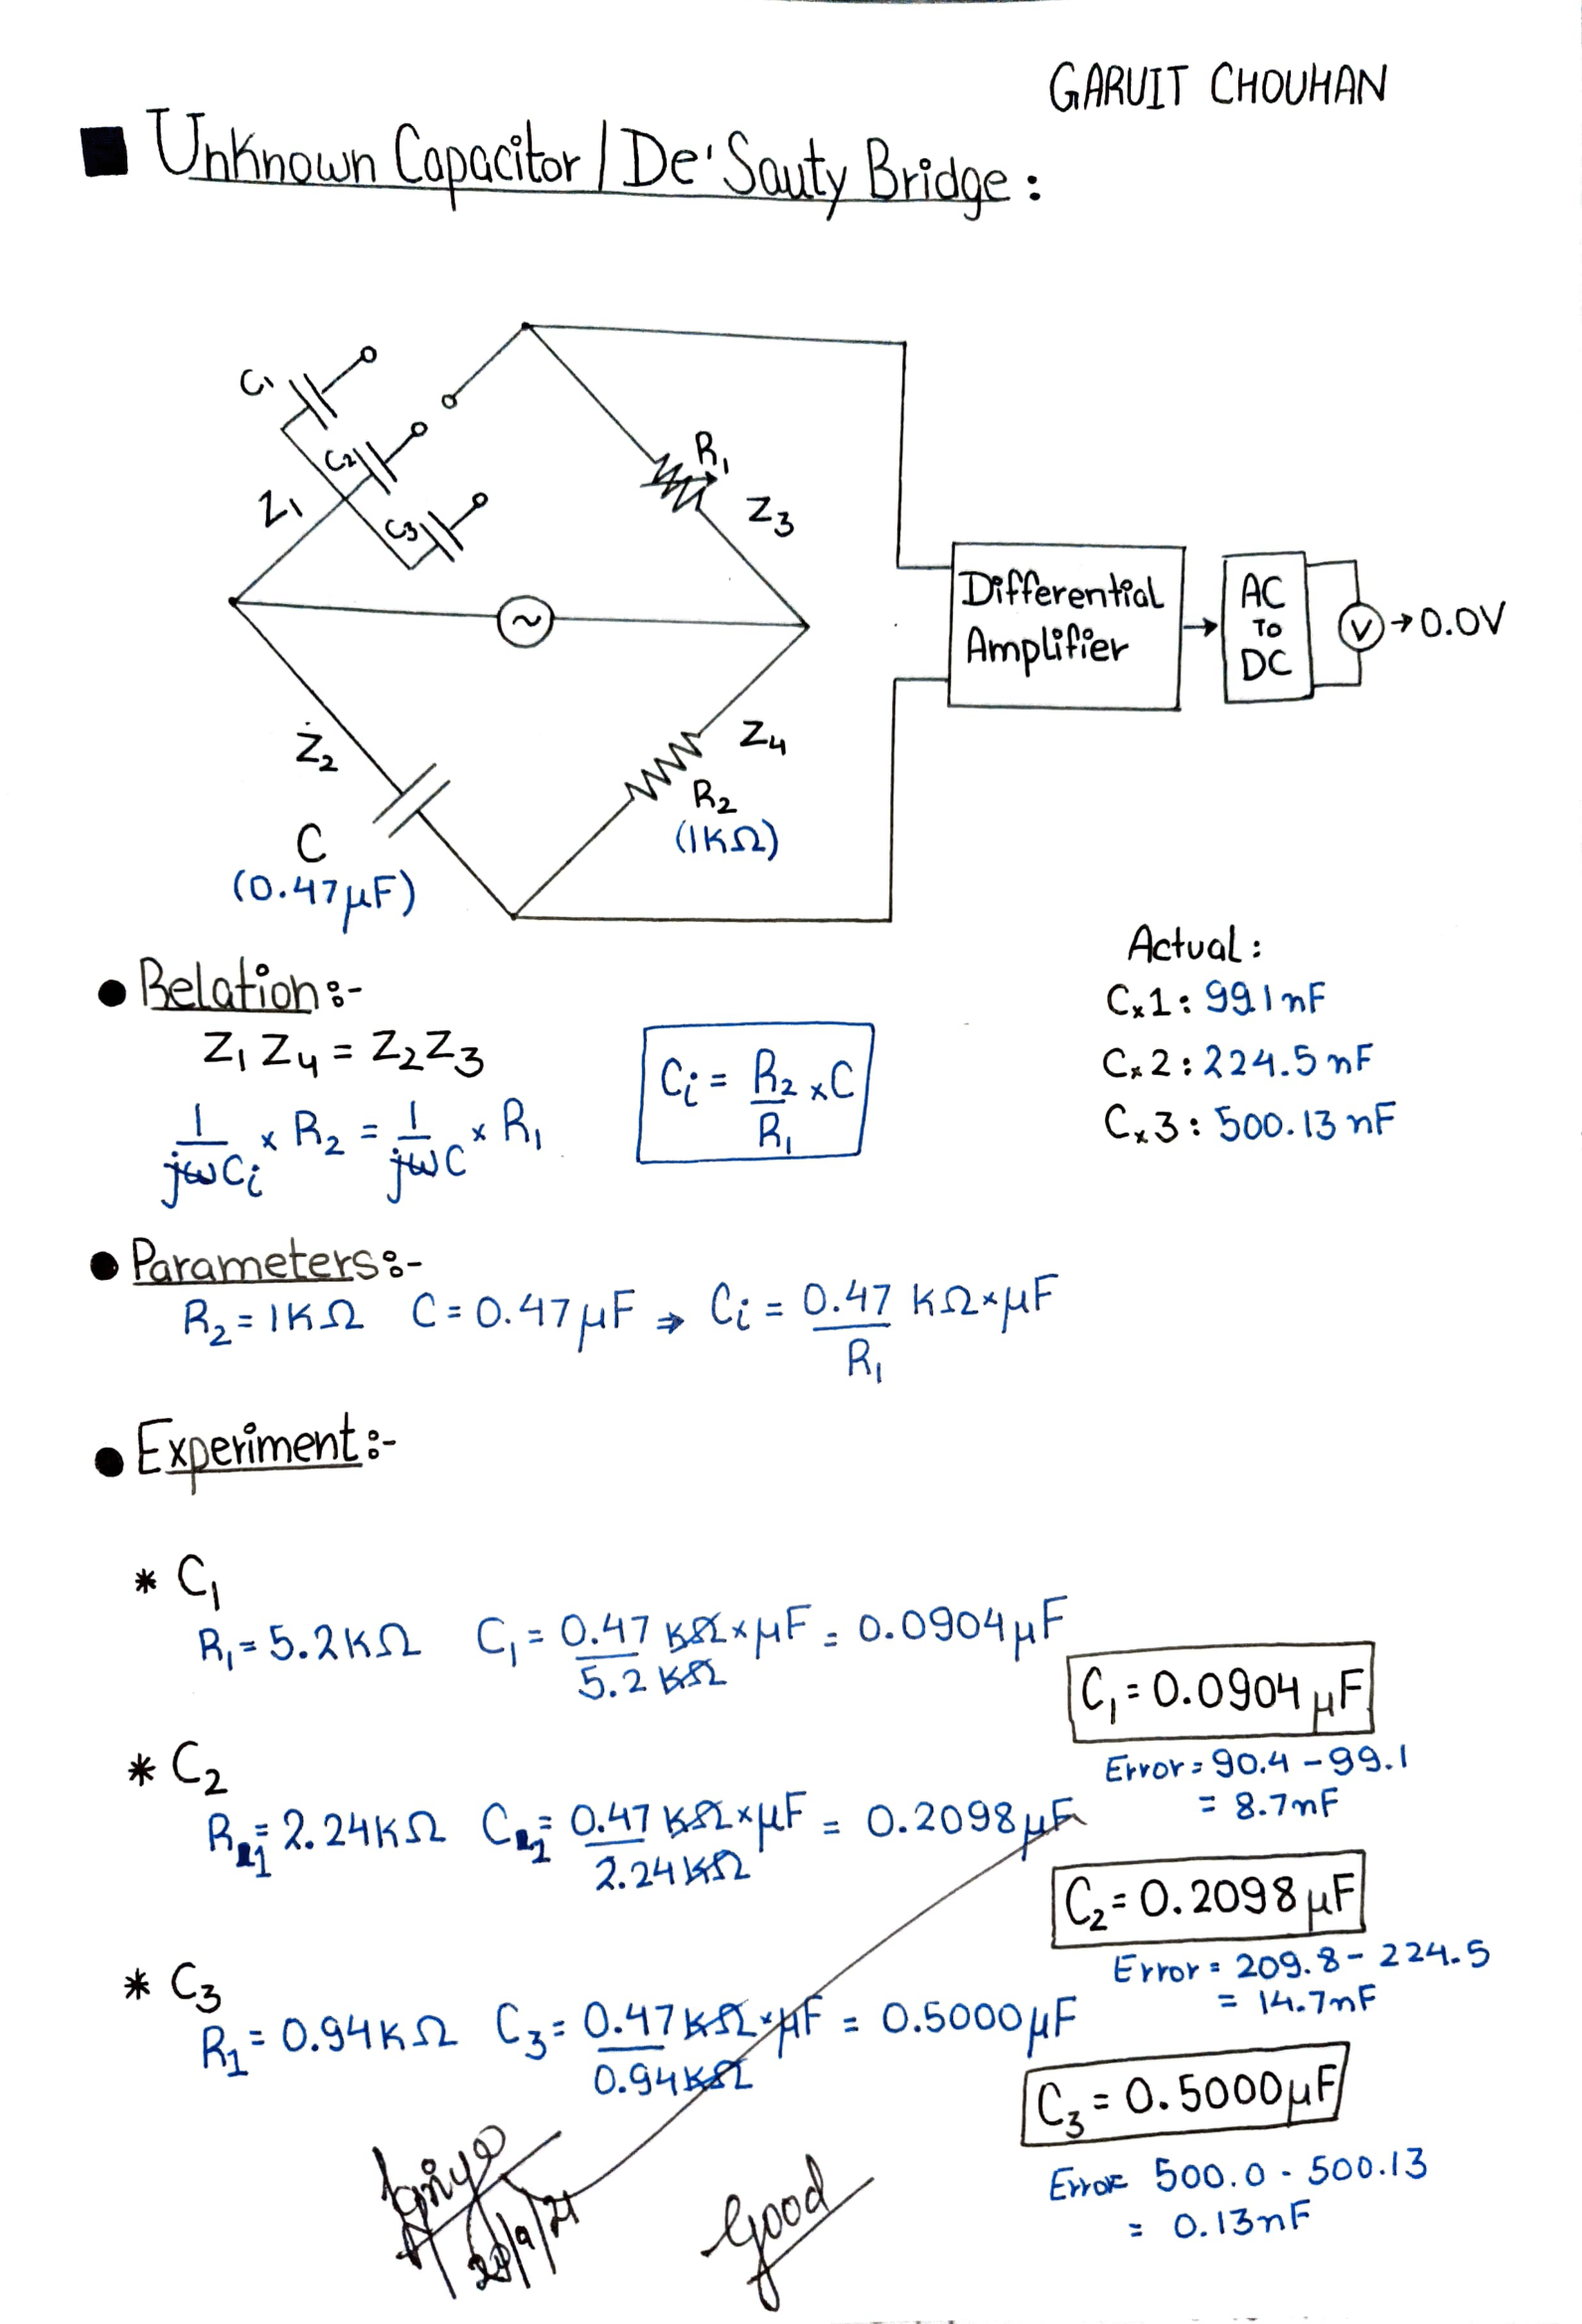 GARUIT CHOUHAN
Unknown Capacitor / De'Sauty Bridge :
C1
C2
C3
Z1
R1
Z3
Differential
Amplifier
AC
TO
DC
V
→ 0.0V
~
Z2
C
(0.47µF)
Z4
R2
(1KΩ)
Actual :
Cx1 : 99.1nF
Cx2 : 224.5 nF
Cx3 : 500.13 nF
• Relation :-
Z1 Z4 = Z2 Z3
1/jωCi × R2 = 1/jωC × R1
Ci = R2/R1 × C
• Parameters :-
R2 = 1KΩ C = 0.47µF ⇒ Ci = 0.47/R1 KΩ×µF
• Experiment :-
* C1
R1 = 5.2KΩ C1 = 0.47 KΩ×µF / 5.2 KΩ = 0.0904µF
C1 = 0.0904 µF
Error = 90.4 - 99.1
= 8.7nF
* C2
R1 = 2.24KΩ C2 = 0.47 KΩ×µF / 2.24 KΩ = 0.2098µF
C2 = 0.2098 µF
Error = 209.8 - 224.5
= 14.7nF
* C3
R1 = 0.94KΩ C3 = 0.47 KΩ×µF / 0.94 KΩ = 0.5000µF
C3 = 0.5000µF
Error= 500.0 - 500.13
= 0.13nF
Good